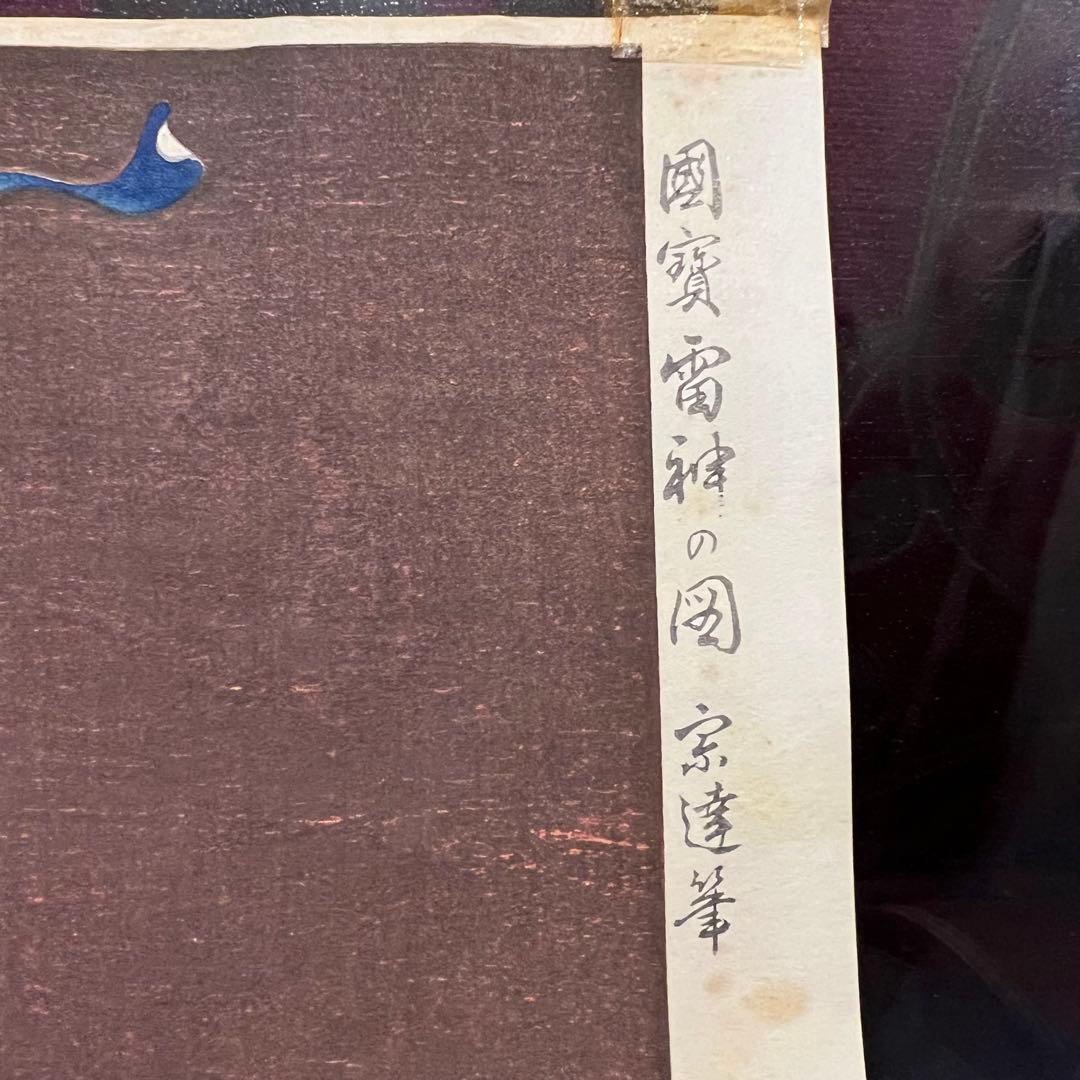 國寳雷神の図 宗達筆